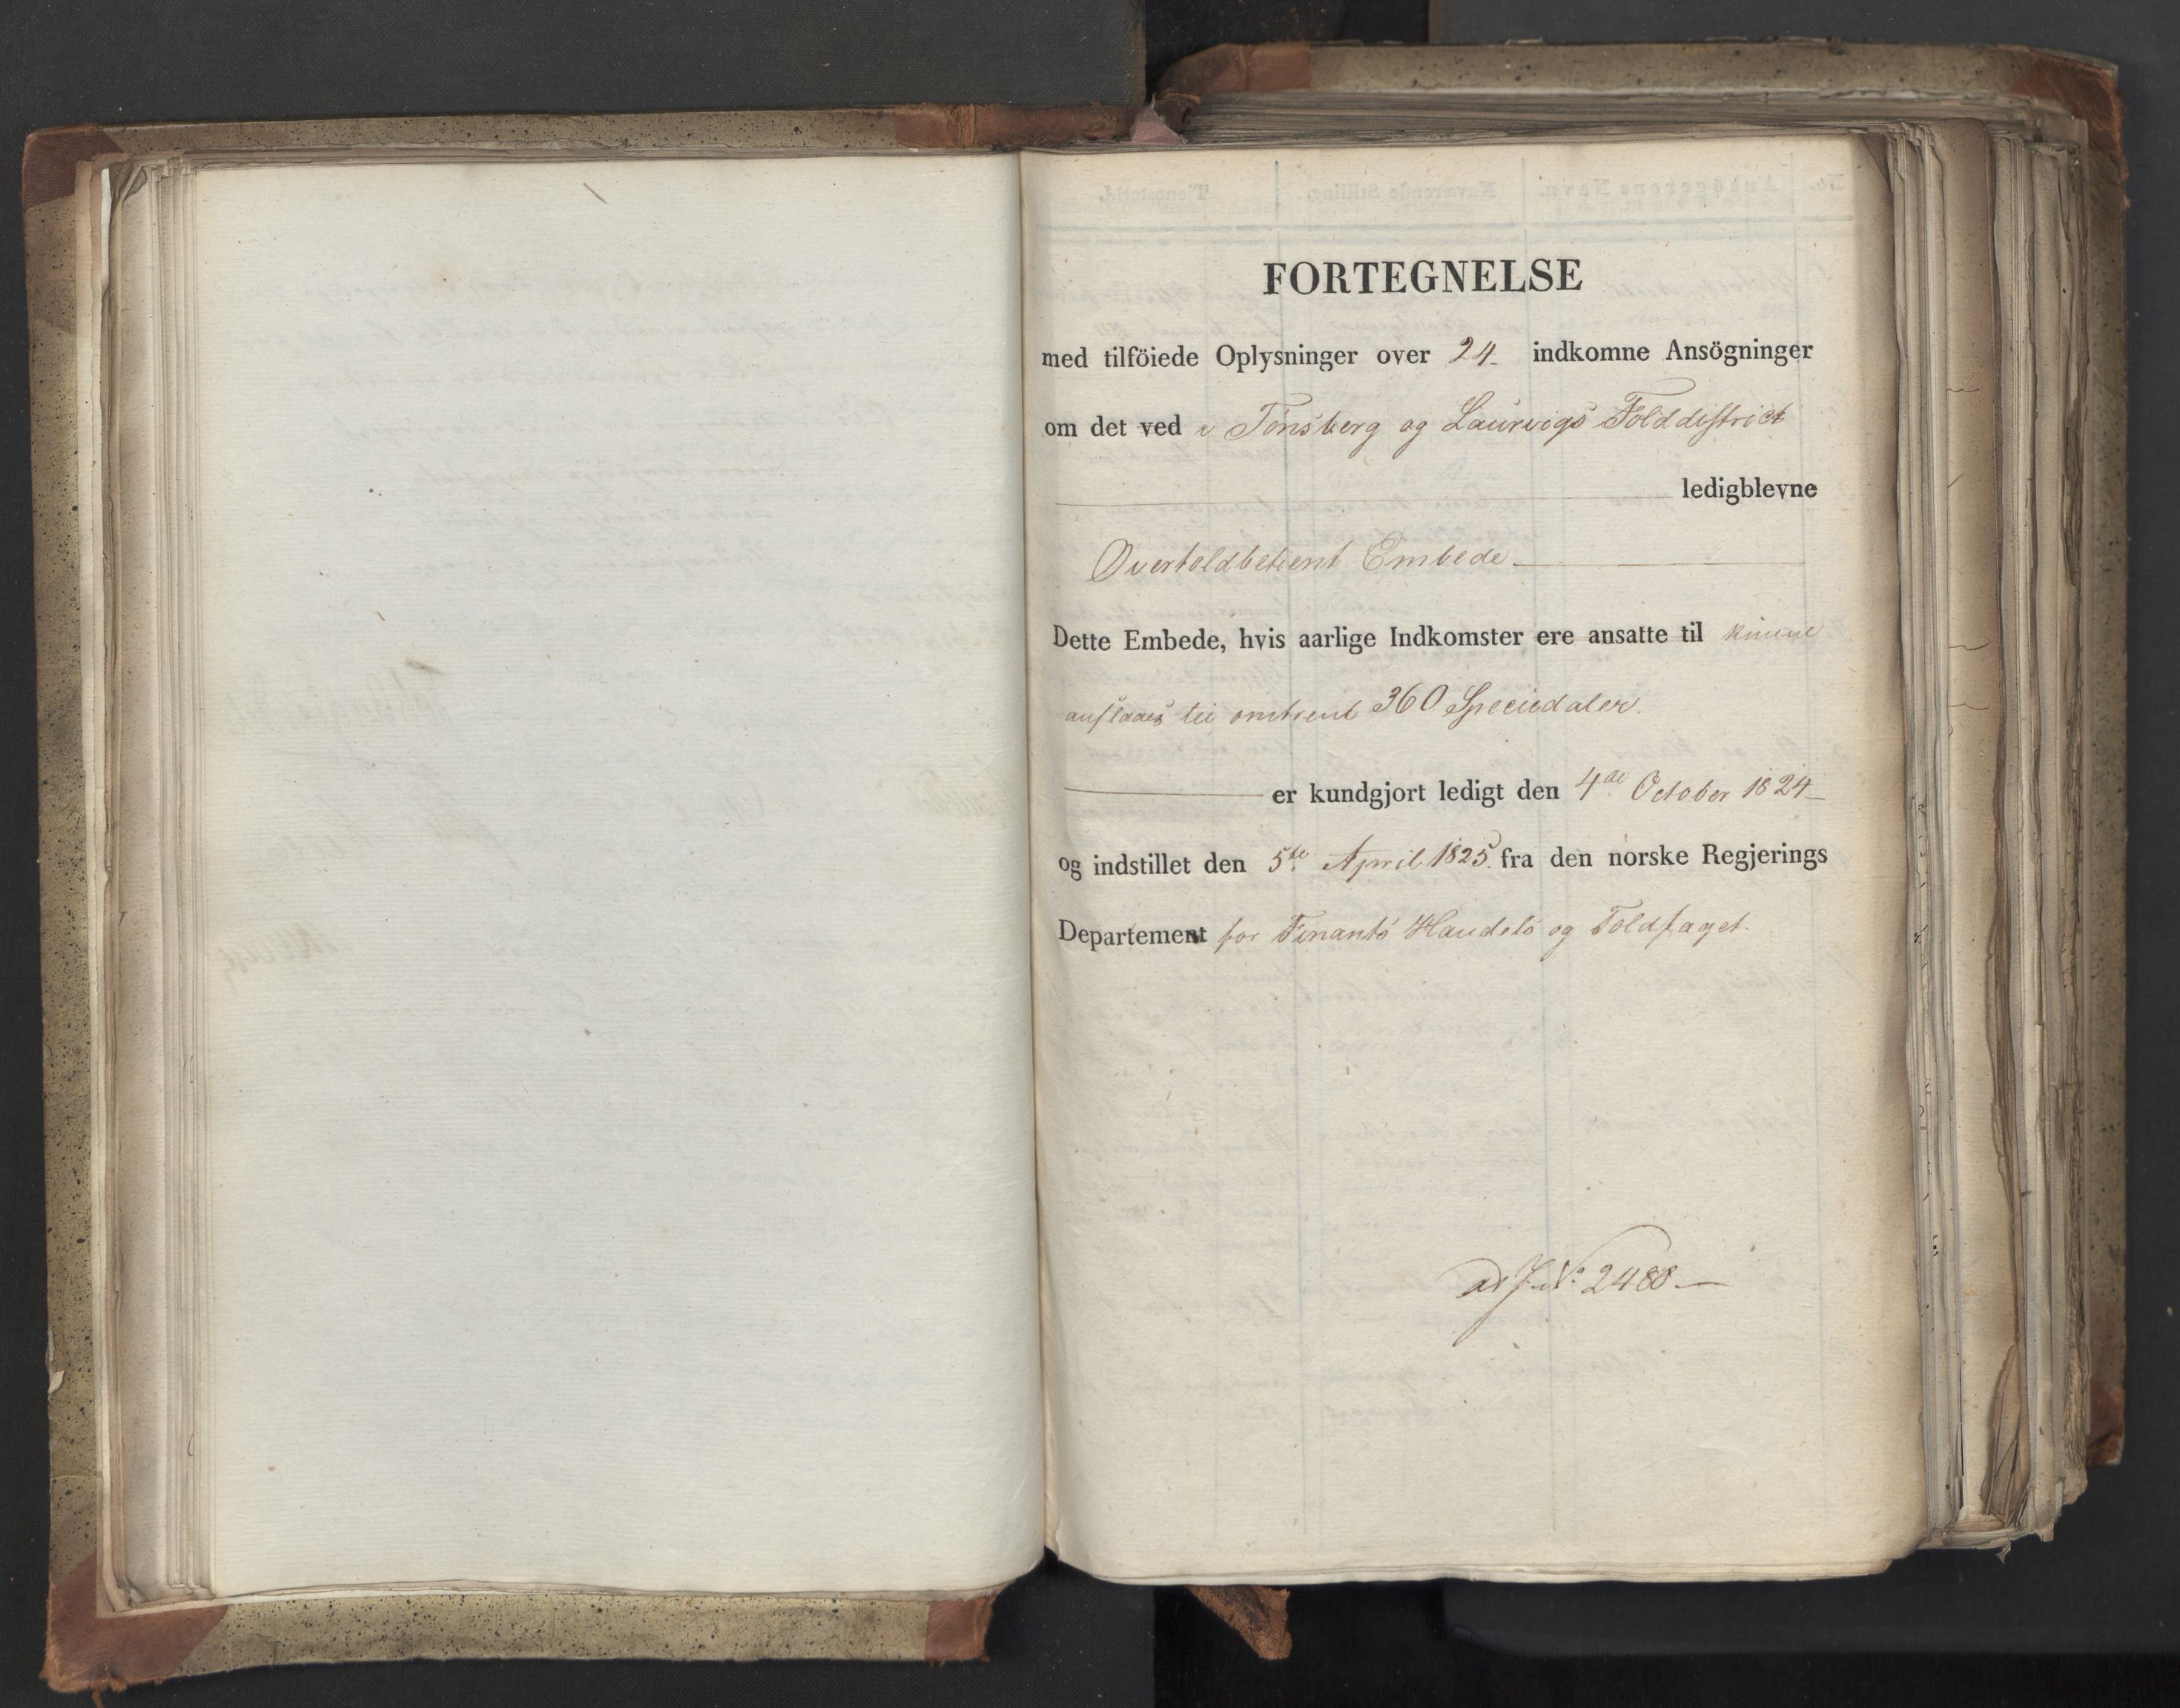 FORTEGNELSE
med tilföiede Oplysninger over 24 indkomne Ansögninger
om det ved i Tønsberg og Laurvigs Tolddistrict
ledigblevne
Overtoldbetient Embede
Dette Embede, hvis aarlige Indkomster ere ansatte til kunne
anslaaes til omtrent 360 Speciedaler.
er kundgjort ledigt den 4de October 1824
og indstillet den 5te April 1825 fra den norske Regjerings
Departement for Finants Handels og Toldfaget.
ad J. No 2488